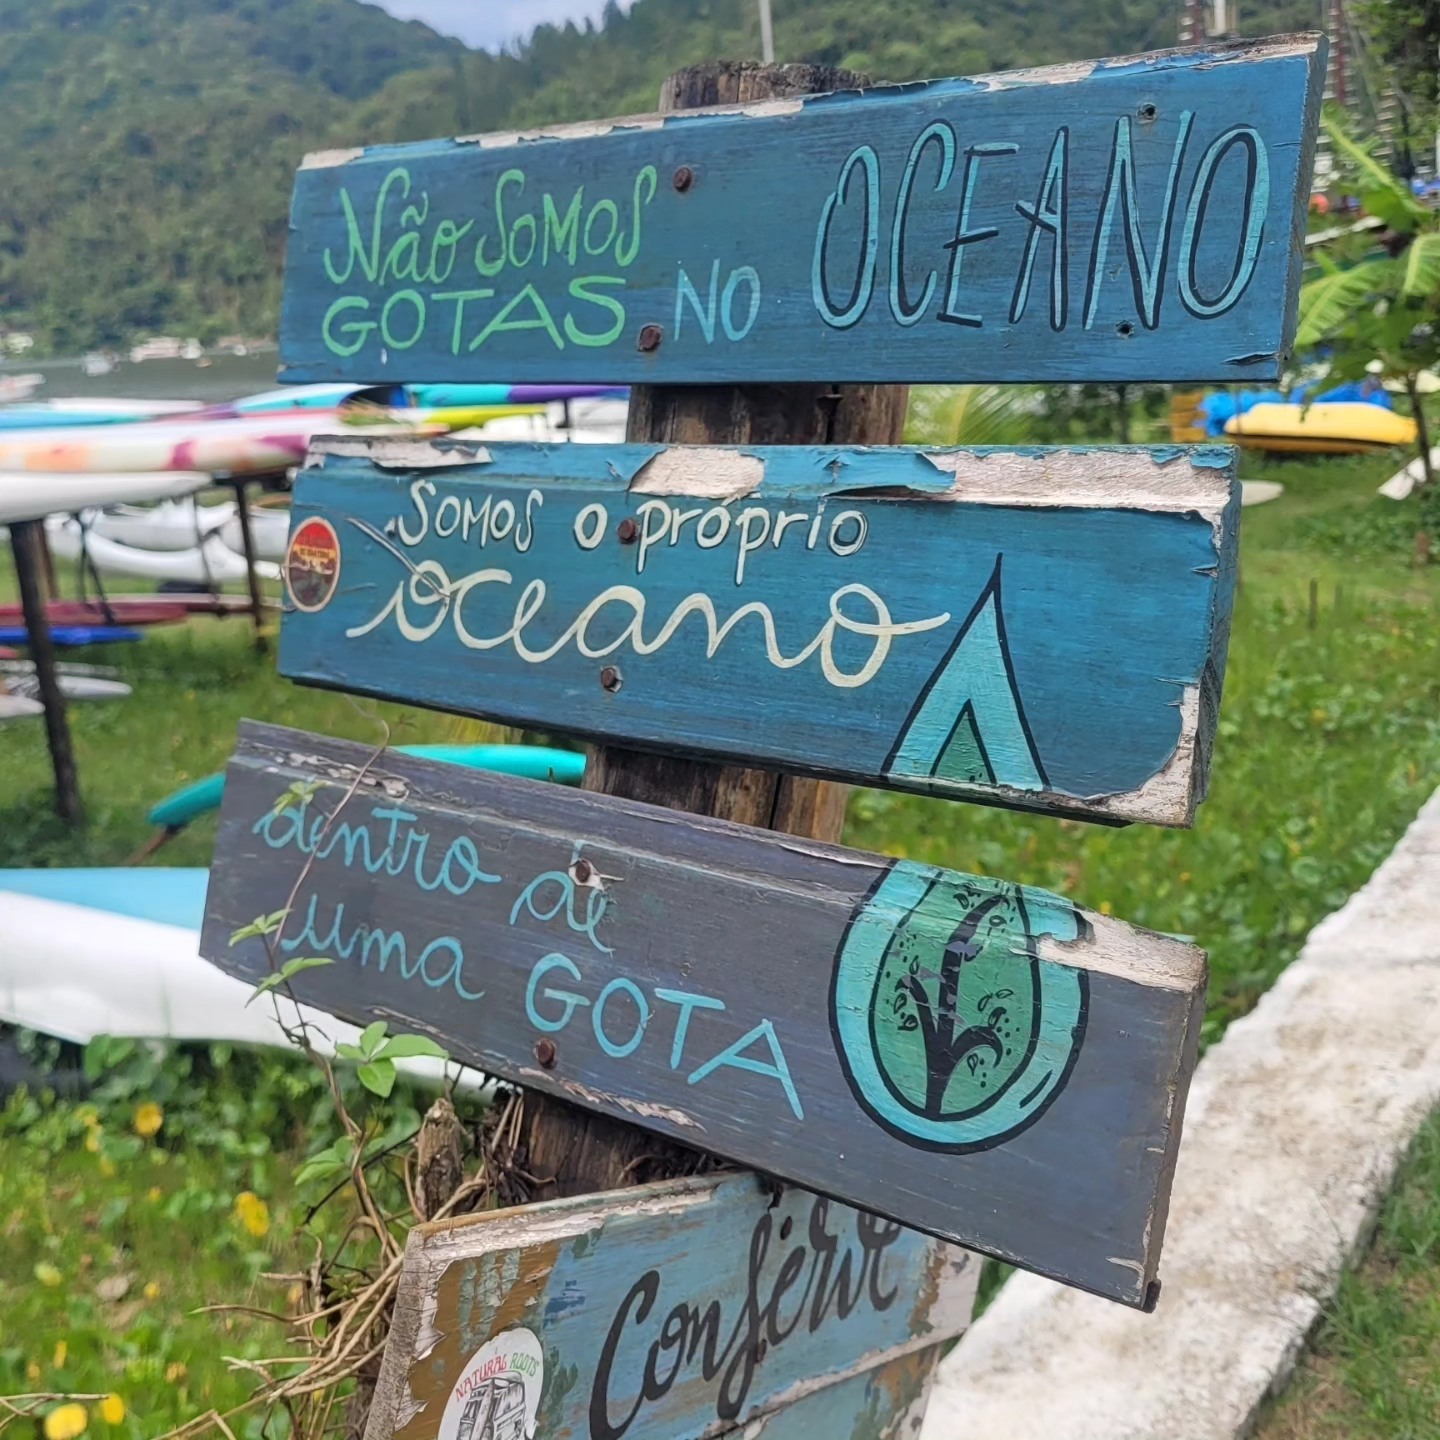 Não SOMOS
GOTAS NO OCEANO
SOMOS o próprio
oceano
dentro de
uma GOTA
Conserve
NATURAL ROOTS